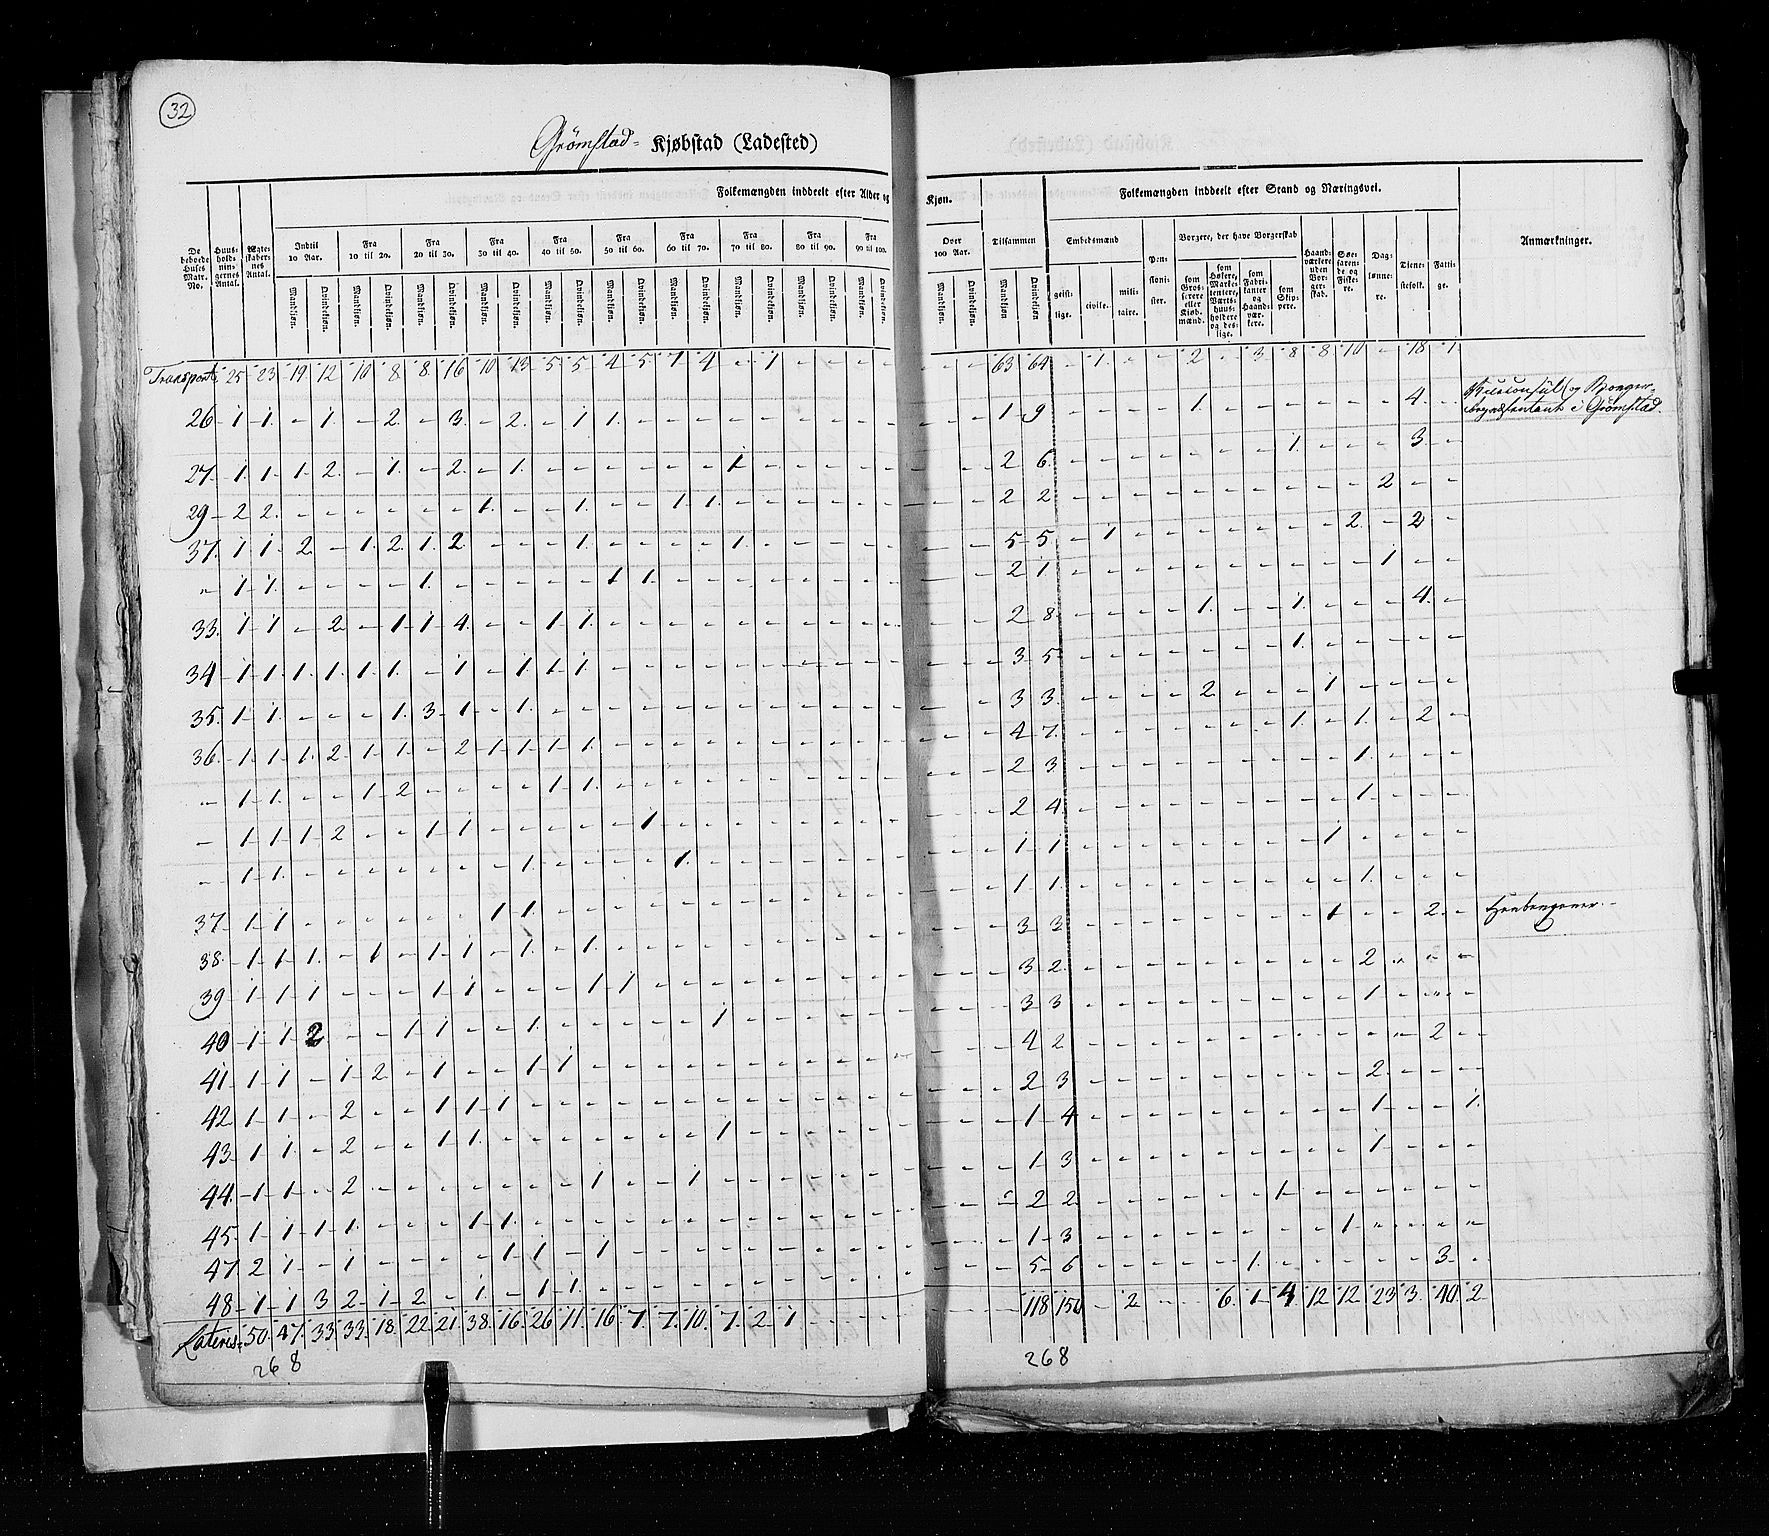 32
Grømstad- Kjøbstad (Ladested)
Folkemængden inddeelt efter Alder og Kjøn.
Folkemængden inddeelt efter Stand og Næringsvei.
De beboede Huses Matr. No.
Huusholdningernes Antal.
Ægteskabernes Antal.
Indtil 10 Aar.
Fra 10 til 20.
Fra 20 til 30.
Fra 30 til 40.
Fra 40 til 50.
Fra 50 til 60.
Fra 60 til 70.
Fra 70 til 80.
Fra 80 til 90.
Fra 90 til 100.
Over 100 Aar.
Tilsammen
Mandkjøn. Qvindekjøn.
Embedsmænd
geistlige. civile. militaire.
Pensionister.
Borgere, der have Borgerskab
som Grosserere eller Kjøbmænd.
som Høkere, Marketentere, Værtshuusholdere og deslige.
som Fabrikanter og Haandværkere.
som Skippere.
Haandværkere uden Borgerskab.
Søefarende og Fiskere.
Daglønnere.
Tjenestefolk.
Fattige.
Anmærkninger.
Transport 25 23 19 12 10 8 8 16 10 13 5 5 4 5 7 4 - 1 - - - - - - 63 64 - 1 - - 2 - 3 8 8 10 - 18 1
26 1 1 - 1 - 2 - 3 - 2 - 1 1 - - - - - - - - - - - 1 9 - - - - 1 - - - - - - 4 - Viceconsul og Borgerrepræsentant i Grømstad
27 1 1 1 2 - 1 - 2 - 1 - - - - - - 1 - - - - - - - 2 6 - - - - - - - 1 - - - 3 -
29 2 2 - - - - - - 1 - - 1 - - 1 1 - - - - - - - - 2 2 - - - - - - - - - - 2 - -
37 1 1 2 - 1 2 1 2 - - - 1 - - - - 1 - - - - - - - 5 5 - 1 - - - - - - - 2 - 2 -
" 1 1 - - - - 1 - - - - - 1 1 - - - - - - - - - - 2 1 - - - - - - - - - - 1 - -
33 1 1 - 2 - 1 1 4 - - 1 1 - - - - - - - - - - - - 2 8 - - - - 1 - - 1 - - - 4 -
34 1 1 1 1 1 1 - 1 - 1 1 1 - - - - - - - - - - - - 3 5 - - - - - - - 1 - - - - -
35 1 1 - - - 1 3 1 - 1 - - - - - - - - - - - - - - 3 3 - - - - 2 - - - 1 - - - -
36 1 1 1 2 1 1 - 2 1 1 1 1 - - - - - - - - - - - - 4 7 - - - - - - - 1 - 1 - 2 -
- 1 1 - - 1 2 - - - - 1 1 - - - - - - - - - - - - 2 3 - - - - - - - - - 1 - - -
- 1 1 1 2 - - 1 1 - - - - - 1 - - - - - - - - - - 2 4 - - - - - - - - - 1 - - -
- 1 1 - - - - - - - 1 - - - - 1 - - - - - - - - - 1 1 - - - - - - - - 1 - - - -
37 1 1 - - - - - - 1 1 - - - - - - - - - - - - - - 1 1 - - - - - - - - - 1 - - -
38 1 1 1 - 1 - 1 1 - 1 - 1 - - - - - - - - - - - - 3 3 - - - - - - - - 1 - - 2 -
39 1 1 1 - - - 1 1 - - - - 1 1 - - - - - - - - - - 3 2 - - - - - - - - - 2 - - -
40 1 1 2 - - - 1 1 - - 1 - - - - - - 1 - - - - - - 3 3 - - - - - - - - - 1 - - -
41 1 1 - 1 2 - 1 - - - 1 1 - - - - - - - - - - - - 4 2 - - - - - - - - - - - 2 -
42 1 1 - 2 - - 1 1 1 - - - - - - - - - - - - - - - 2 3 - - - - - - - - - 2 - - -
43 1 1 - 2 - - 1 1 - - - - - - - - 1 - - - - - - - 1 4 - - - - - - - - - 1 - - 1
44 1 1 - 2 - - - - - - - - 1 - - 1 - - - - - - - - 1 3 - - - - - - - - - 1 - - -
45 1 1 1 1 - - - - 1 1 - - - - - - - - - - - - - - 2 2 - - - - - - 1 - - - - - -
47 2 1 - 1 - - - - - 1 1 - 1 - - - - - - - - - - - 1 3 - - - - - - - - 1 - - - -
48 1 1 3 2 1 2 - 1 - 1 1 - - - - - - - - - - - - - 5 6 - - - - - 1 - - - - - 3 -
Lateris 50 47 33 33 18 22 21 38 16 26 11 16 7 7 10 7 2 1 - - - - - - 118 150 - 2 - - 6 1 4 12 12 23 3 40 2
268
268